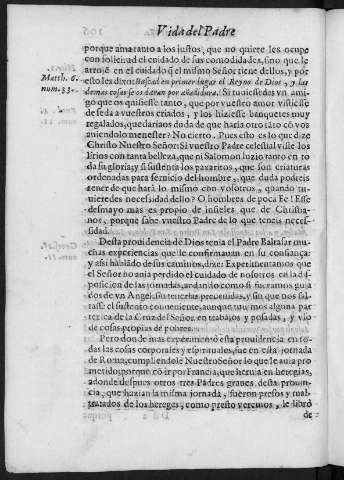 Vida del Padre
porque ama tanto a los justos, que no quiere les ocupe
con solicitud el cuidado de sus comodidades, sino que le
arrojẽ en el cuidado q̃ el mismo Señor tiene dellos, y por
esto les dixo: Buscad en primer lugar el Reyno de Dios, y las
demas cosas se os daran por añadidura. Si tuviessedes vn ami-
Matth. 6.
num. 33.
go que os quisiesse tanto, que por vuestro amor vistiesse
de seda a vuestros criados, y los hiziesse banquetes muy
regalados, que dariaos duda de que haria otro tãto cõ vos
auiendolo menester? No cierto. Pues esto es lo que dize
Christo Nuestro Señor: Si vuestro Padre celestial viste los
lirios con tanta belleza, que ni Salomon luzio tanto en to
da su gloria; y si sustenta los paxaritos, que son criaturas
ordenadas para seruicio del hombre, que duda podeis
tener de que hará lo mismo con vosotros, quando tu-
uieredes necessidad dello? O hombres de poca Fe! Esse
desmayo mas es propio de infieles que de Christia-
nos, porque sabe vuestro Padre de lo que teneis neces-
sidad.
Desta prouidencia de Dios tenia el Padre Baltasar mu
chas experiencias que le confirmauan en su confiança
y assi hablãdo de sus caminos, dize: Experimentamos que
el Señor no auia perdido el cuidado de nosotros en la dis-
posicion de las jornadas, ordando como si fueramos guia
dos de vn Angel, sus tenerlas preuenidas, y sin que nos fal-
tasse el sustento conueniente, aunque tuuimos alguna par
te rica de la Cruz del Señor, en trabajos y posadas, y vso
de cosas propias de pobres.
Pero donde mas experimentó esta prouidencia en to-
das las cosas corporales y espirituales, fue en esta jornada
de Roma, cumpliendole Nuestro Señor lo que le auia pro
metido; porque cõ ir por Francia, que heruia en heregias,
adonde despues otros tres Padres graues desta prouin-
cia, que hazian la misma jornada, fueron presos y mal-
tratados de los hereges, como presto veremos, le librò
de